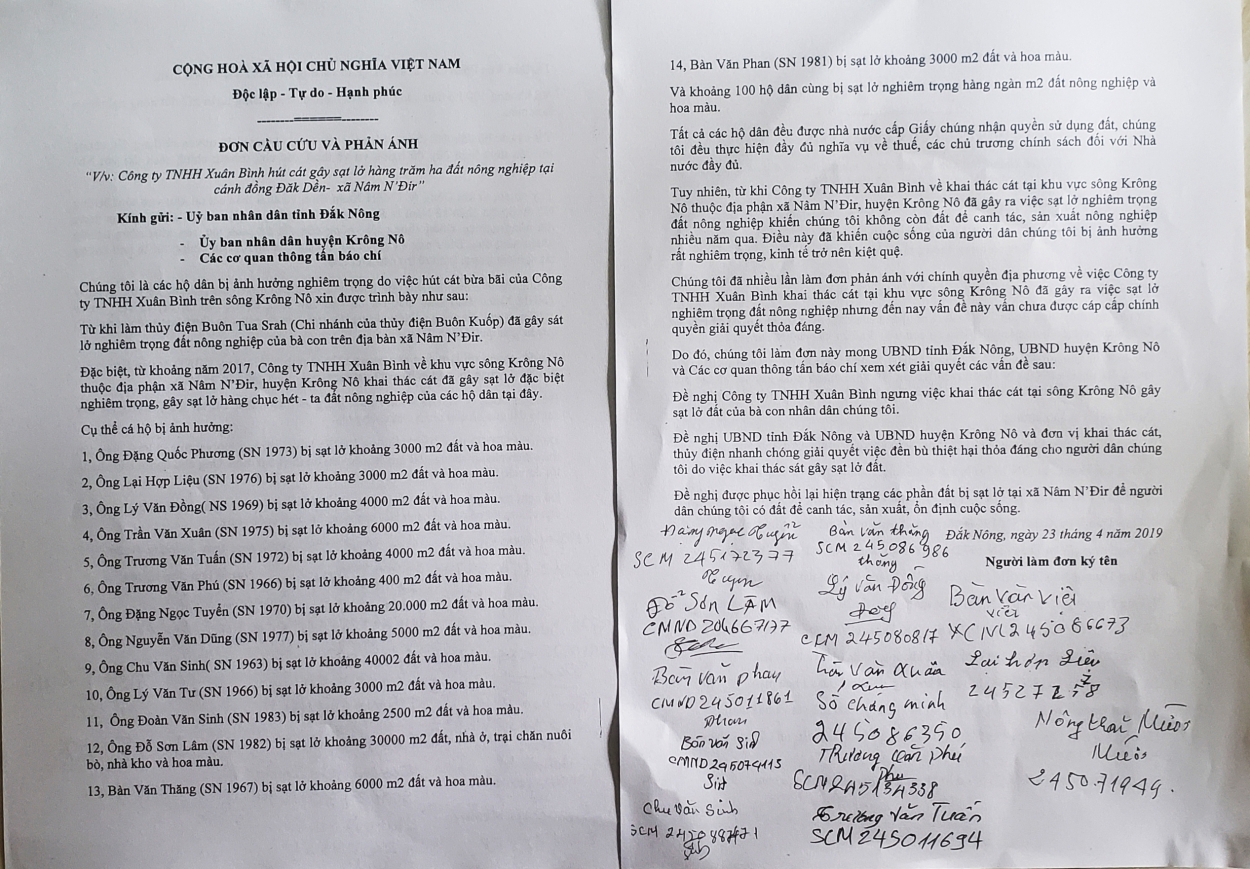 CỘNG HOÀ XÃ HỘI CHỦ NGHĨA VIỆT NAM
Độc lập - Tự do - Hạnh phúc
--------=======--------
ĐƠN CẦU CỨU VÀ PHẢN ÁNH
"V/v: Công ty TNHH Xuân Bình hút cát gây sạt lở hàng trăm ha đất nông nghiệp tại
cánh đồng Đăk Dền- xã Nâm N'Đir"
Kính gửi: - Uỷ ban nhân dân tỉnh Đắk Nông
- Ủy ban nhân dân huyện Krông Nô
- Các cơ quan thông tấn báo chí
Chúng tôi là các hộ dân bị ảnh hưởng nghiêm trọng do việc hút cát bừa bãi của Công
ty TNHH Xuân Bình trên sông Krông Nô xin được trình bày như sau:
Từ khi làm thủy điện Buôn Tua Srah (Chi nhánh của thủy điện Buôn Kuốp) đã gây sát
lở nghiêm trọng đất nông nghiệp của bà con trên địa bàn xã Nâm N'Đir.
Đặc biệt, từ khoảng năm 2017, Công ty TNHH Xuân Bình về khu vực sông Krông Nô
thuộc địa phận xã Nâm N'Đir, huyện Krông Nô khai thác cát đã gây sạt lở đặc biệt
nghiêm trọng, gây sạt lở hàng chục hét - ta đất nông nghiệp của các hộ dân tại đây.
Cụ thể cá hộ bị ảnh hưởng:
1, Ông Đặng Quốc Phương (SN 1973) bị sạt lở khoảng 3000 m2 đất và hoa màu.
2, Ông Lại Hợp Liệu (SN 1976) bị sạt lở khoảng 3000 m2 đất và hoa màu.
3, Ông Lý Văn Đồng( NS 1969) bị sạt lở khoảng 4000 m2 đất và hoa màu.
4, Ông Trần Văn Xuân (SN 1975) bị sạt lở khoảng 6000 m2 đất và hoa màu.
5, Ông Trương Văn Tuấn (SN 1972) bị sạt lở khoảng 4000 m2 đất và hoa màu.
6, Ông Trương Văn Phú (SN 1966) bị sạt lở khoảng 400 m2 đất và hoa màu.
7, Ông Đặng Ngọc Tuyển (SN 1970) bị sạt lở khoảng 20.000 m2 đất và hoa màu.
8, Ông Nguyễn Văn Dũng (SN 1977) bị sạt lở khoảng 5000 m2 đất và hoa màu.
9, Ông Chu Văn Sinh( SN 1963) bị sạt lở khoảng 40002 đất và hoa màu.
10, Ông Lý Văn Tư (SN 1966) bị sạt lở khoảng 3000 m2 đất và hoa màu.
11, Ông Đoàn Văn Sinh (SN 1983) bị sạt lở khoảng 2500 m2 đất và hoa màu.
12, Ông Đỗ Sơn Lâm (SN 1982) bị sạt lở khoảng 30000 m2 đất, nhà ở, trại chăn nuôi
bò, nhà kho và hoa màu.
13, Bàn Văn Thăng (SN 1967) bị sạt lở khoảng 6000 m2 đất và hoa màu.
14, Bàn Văn Phan (SN 1981) bị sạt lở khoảng 3000 m2 đất và hoa màu.
Và khoảng 100 hộ dân cùng bị sạt lở nghiêm trọng hàng ngàn m2 đất nông nghiệp và
hoa màu.
Tất cả các hộ dân đều được nhà nước cấp Giấy chúng nhận quyền sử dụng đất, chúng
tôi đều thực hiện đầy đủ nghĩa vụ về thuế, các chủ trương chính sách đối với Nhà
nước đầy đủ.
Tuy nhiên, từ khi Công ty TNHH Xuân Bình về khai thác cát tại khu vực sông Krông
Nô thuộc địa phận xã Nâm N'Đir, huyện Krông Nô đã gây ra việc sạt lở nghiêm trọng
đất nông nghiệp khiến chúng tôi không còn đất để canh tác, sản xuất nông nghiệp
nhiều năm qua. Điều này đã khiến cuộc sống của người dân chúng tôi bị ảnh hưởng
rất nghiêm trọng, kinh tế trở nên kiệt quệ.
Chúng tôi đã nhiều lần làm đơn phản ánh với chính quyền địa phương về việc Công ty
TNHH Xuân Bình khai thác cát tại khu vực sông Krông Nô đã gây ra việc sạt lở
nghiêm trọng đất nông nghiệp nhưng đến nay vấn đề này vẫn chưa được cáp cấp chính
quyền giải quyết thỏa đáng.
Do đó, chúng tôi làm đơn này mong UBND tỉnh Đắk Nông, UBND huyện Krông Nô
và Các cơ quan thông tấn báo chí xem xét giải quyết các vấn đề sau:
Đề nghị Công ty TNHH Xuân Bình ngưng việc khai thác cát tại sông Krông Nô gây
sạt lở đất của bà con nhân dân chúng tôi.
Đề nghị UBND tỉnh Đắk Nông và UBND huyện Krông Nô và đơn vị khai thác cát,
thủy điện nhanh chóng giải quyết việc đền bù thiệt hại thỏa đáng cho người dân chúng
tôi do việc khai thác sát gây sạt lở đất.
Đề nghị được phục hồi lại hiện trạng các phần đất bị sạt lở tại xã Nâm N'Đir để người
dân chúng tôi có đất để canh tác, sản xuất, ổn định cuộc sống.
Đắk Nông, ngày 23 tháng 4 năm 2019
Người làm đơn ký tên
Bàn văn thăng
SCM 245086986
thăng
SCM 245172377
Đỗ Sơn LÂM
CMND 204667177
Lý văn Đồng
Bàn văn việi
Bàn văn phay
CMND 245011861
phan
Trần Văn Xuân
Số chứng minh
245086350
Lại hợp Liệu
CMND 245074115
Trương văn phú
SCM 245134338
Nông thai
245071949.
Chu Văn Sinh
Trương Văn Tuấn
SCM 245011694